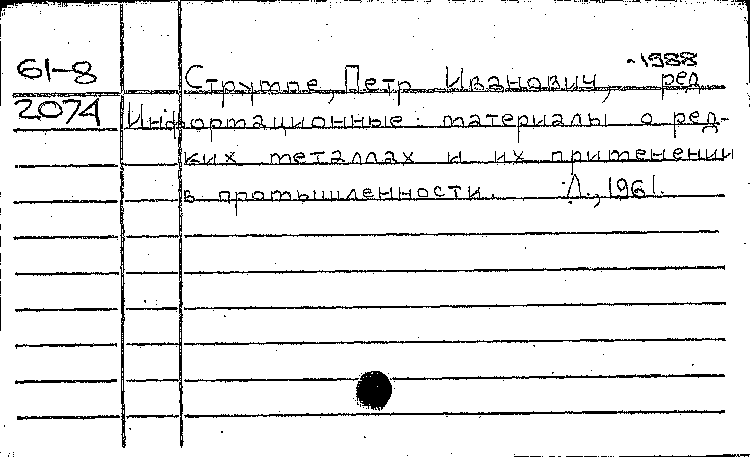 -1988
61-8 Струмпе, Петр Иванович, ред
2074 Информационные материалы о ред-
ких металлах и их применении
в промышленности. Л., 1961.